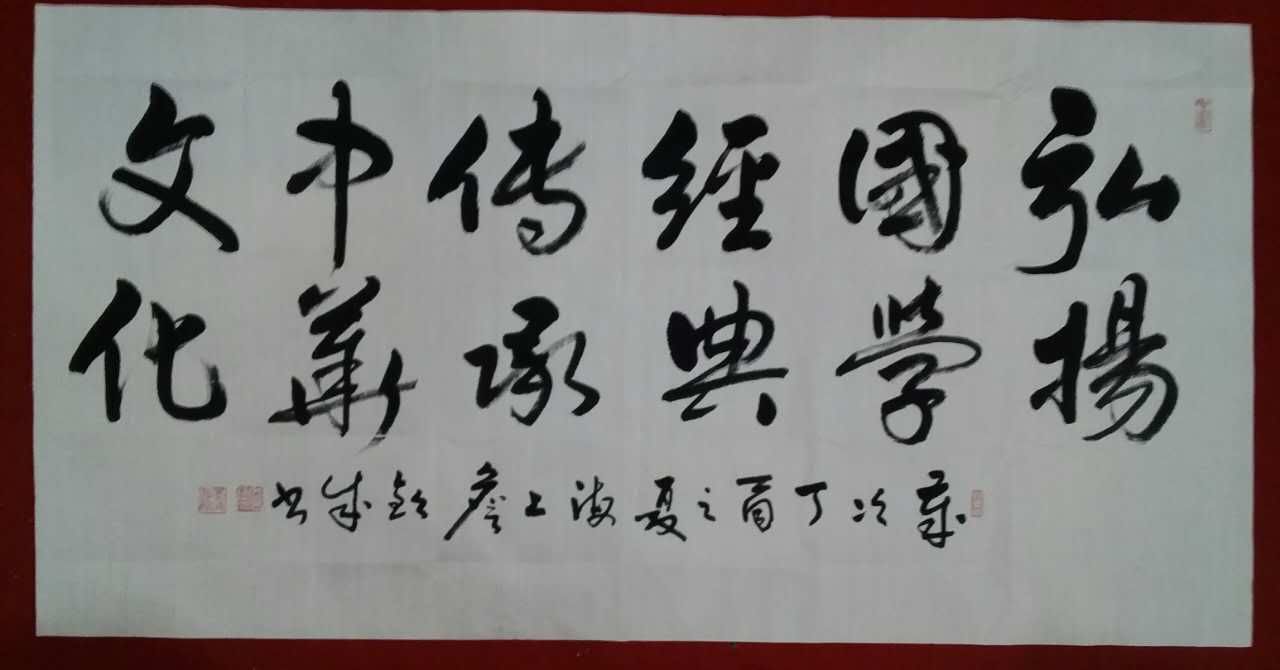 弘揚
國學
經典
傳承
中華
文化
歲次丁酉之夏海上詹欽成書